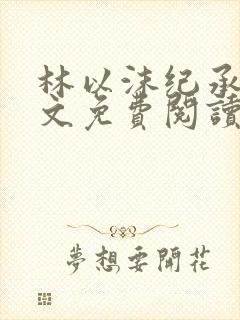 林以沫纪承
文免費閱讀
夢想要開花